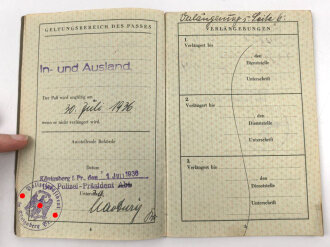 GELTUNGSBEREICH DES PASSES
In- und Ausland.
Der Paß wird ungültig am
30. Juli 1936
wenn er nicht verlängert wird.
Ausstellende Behörde
Datum
Königsberg i. Pr. den 1. Juli 1936
Der Polizei-Präsident
Unterschrift
4
Verlängerung s. Seite 6.
VERLÄNGERUNGEN
1.
Verlängert bis
den
Dienststelle
Unterschrift
2.
Verlängert bis
den
Dienststelle
Unterschrift
3.
Verlängert bis
den
Dienststelle
Unterschrift